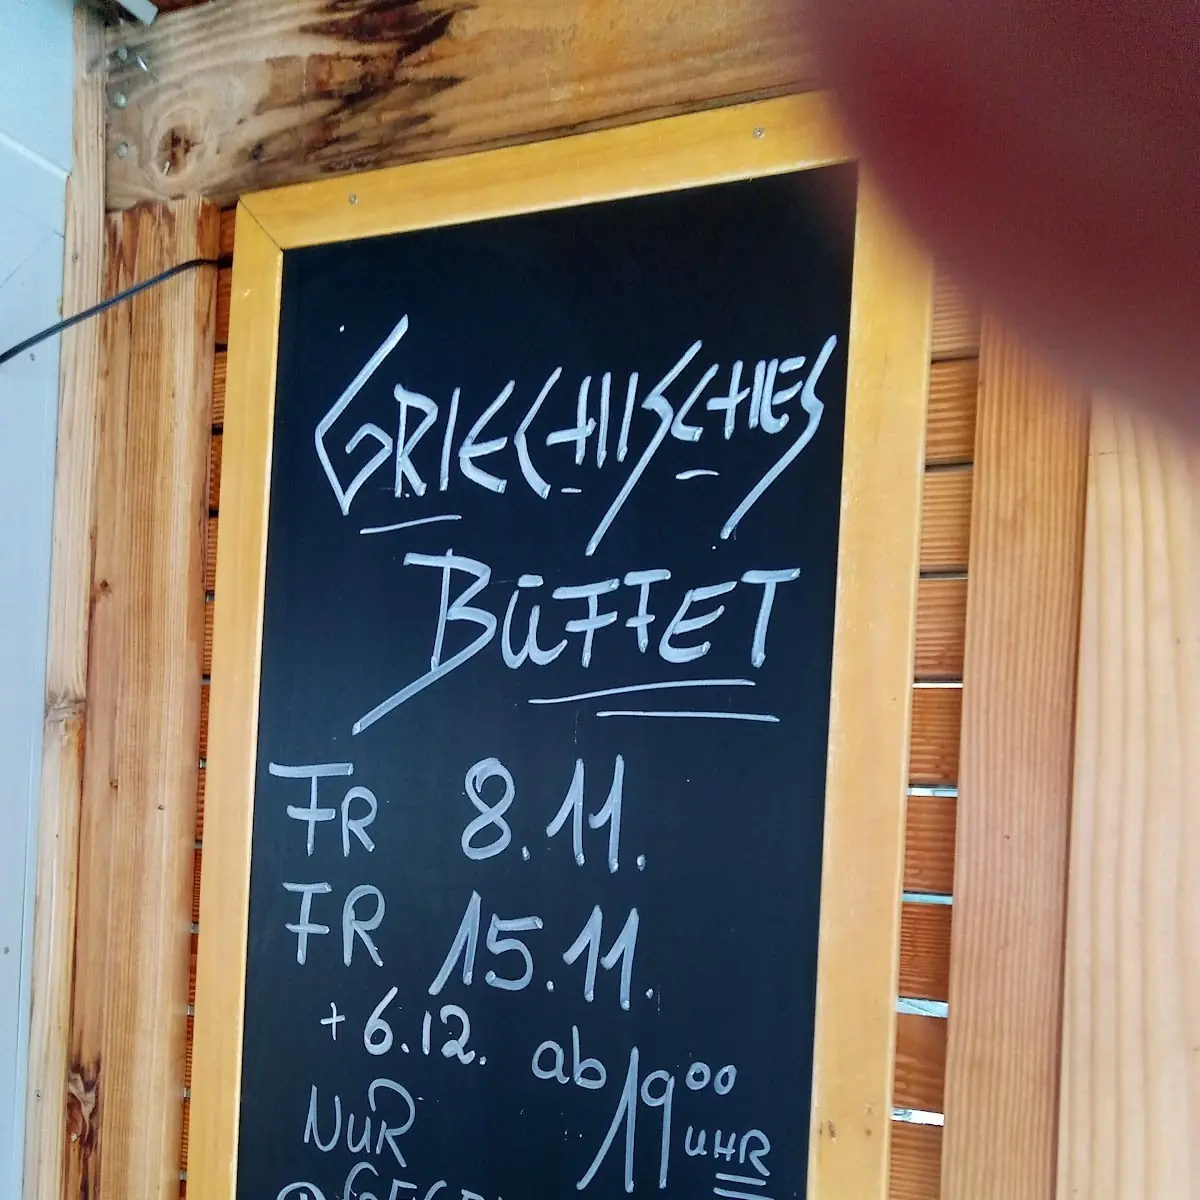 GRIECHISCHES
BÜFFET
FR 8.11.
FR 15.11.
+ 6.12. ab 19⁰⁰ UHR
NUR